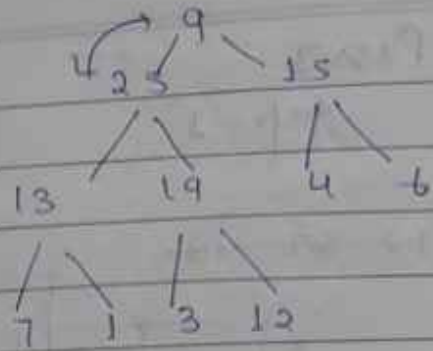 9
25 15
13 19 4 6
7 1 3 12